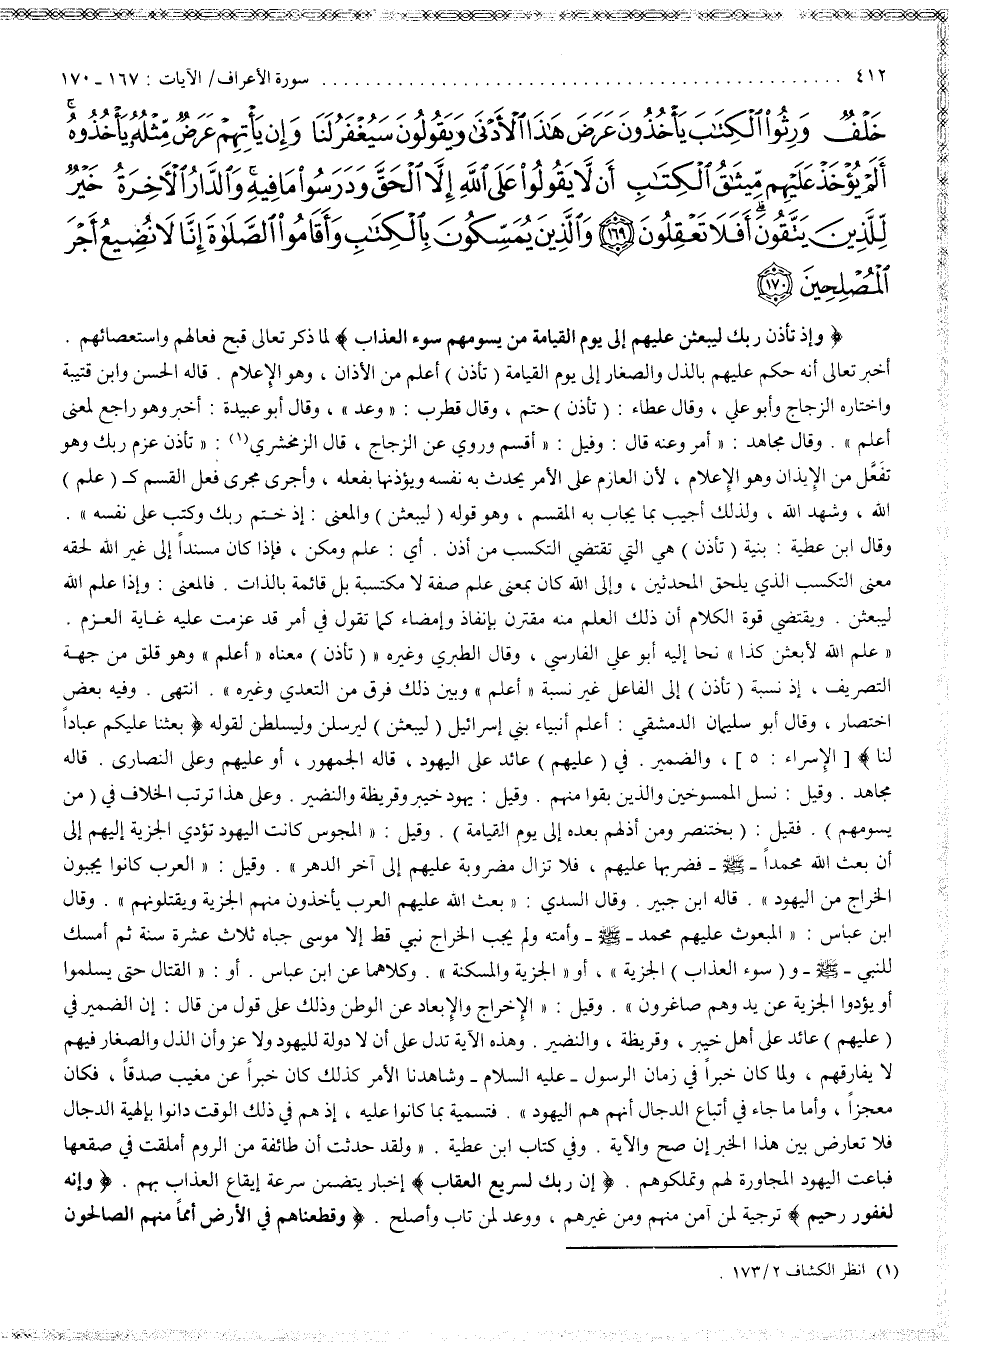 ٤١٢ ............................................. سورة الأعراف/ الآيات : ١٦٧ ـ ١٧٠
خَلْفٌ وَرِثُوا۟ ٱلْكِتَـٰبَ يَأْخُذُونَ عَرَضَ هَـٰذَا ٱلْأَدْنَىٰ وَيَقُولُونَ سَيُغْفَرُ لَنَا وَإِن يَأْتِهِمْ عَرَضٌ مِّثْلُهُۥ يَأْخُذُوهُ ۚ
أَلَمْ يُؤْخَذْ عَلَيْهِم مِّيثَـٰقُ ٱلْكِتَـٰبِ أَن لَّا يَقُولُوا۟ عَلَى ٱللَّهِ إِلَّا ٱلْحَقَّ وَدَرَسُوا۟ مَا فِيهِ ۗ وَٱلدَّارُ ٱلْأَخِرَةُ خَيْرٌ
لِّلَّذِينَ يَتَّقُونَ ۗ أَفَلَا تَعْقِلُونَ ١٦٩ وَٱلَّذِينَ يُمَسِّكُونَ بِٱلْكِتَـٰبِ وَأَقَامُوا۟ ٱلصَّلَوٰةَ إِنَّا لَا نُضِيعُ أَجْرَ
ٱلْمُصْلِحِينَ ١٧٠
﴿ وإذ تأذن ربك ليبعثن عليهم إلى يوم القيامة من يسومهم سوء العذاب ﴾ لما ذكر تعالى قبح فعالهم واستعصائهم .
أخبر تعالى أنه حكم عليهم بالذل والصغار إلى يوم القيامة ( تأذن ) أعلم من الأذان ، وهو الإعلام . قاله الحسن وابن قتيبة
واختاره الزجاج وأبو علي ، وقال عطاء : ( تأذن ) حتم ، وقال قطرب : « وعد » ، وقال أبو عبيدة : أخبر وهو راجع لمعنى
أعلم » . وقال مجاهد : « أمر وعنه قال : وقيل : « أقسم وروي عن الزجاج ، قال الزمخشري(١) : « تأذن عزم ربك وهو
تفعَّل من الإيذان وهو الإعلام ، لأن العازم على الأمر يحدث به نفسه ويؤذنها بفعله ، وأجرى مجرى فعل القسم كـ ( علم )
الله ، وشهد الله ، ولذلك أجيب بما يجاب به المقسم ، وهو قوله ( ليبعثن ) والمعنى : إذ حتم ربك وكتب على نفسه » .
وقال ابن عطية : بنية ( تأذن ) هي التي تقتضي التكسب من أذن . أي : علم ومكن ، فإذا كان مسنداً إلى غير الله لحقه
معنى التكسب الذي يلحق المحدثين ، وإلى الله كان بمعنى علم صفة لا مكتسبة بل قائمة بالذات . فالمعنى : وإذا علم الله
ليبعثن . ويقتضي قوة الكلام أن ذلك العلم منه مقترن بإنفاذ وإمضاء كما تقول في أمر قد عزمت عليه غاية العزم .
« علم الله لأبعثن كذا » نحا إليه أبو علي الفارسي ، وقال الطبري وغيره « ( تأذن ) معناه « أعلم » وهو قلق من جهة
التصريف ، إذ نسبة ( تأذن ) إلى الفاعل غير نسبة « أعلم » وبين ذلك فرق من التعدي وغيره » . انتهى . وفيه بعض
اختصار ، وقال أبو سليمان الدمشقي : أعلم أنبياء بني إسرائيل ( ليبعثن ) ليرسلن وليسلطن لقوله ﴿ بعثنا عليكم عباداً
لنا ﴾ [ الإسراء : ٥ ] ، والضمير . في ( عليهم ) عائد على اليهود ، قاله الجمهور ، أو عليهم وعلى النصارى . قاله
مجاهد . وقيل : نسل الممسوخين والذين بقوا منهم . وقيل : يهود خيبر وقريظة والنضير . وعلى هذا ترتب الخلاف في ( من
يسومهم ) . فقيل : ( بختنصر ومن أذلهم بعده إلى يوم القيامة ) . وقيل : « المجوس كانت اليهود تؤدي الجزية إليهم إلى
أن بعث الله محمداً ـ ﷺ ـ فضربها عليهم ، فلا تزال مضروبة عليهم إلى آخر الدهر » . وقيل : « العرب كانوا يجبون
الخراج من اليهود » . قاله ابن جبير . وقال السدي : « بعث الله عليهم العرب يأخذون منهم الجزية ويقتلونهم » . وقال
ابن عباس : « المبعوث عليهم محمد ـ ﷺ ـ وأمته ولم يجب الخراج نبي قط إلا موسى جباه ثلاث عشرة سنة ثم أمسك
للنبي ـ ﷺ ـ و ( سوء العذاب ) الجزية » ، أو « الجزية والمسكنة » . وكلاهما عن ابن عباس . أو : « القتال حتى يسلموا
أو يؤدوا الجزية عن يد وهم صاغرون » . وقيل : « الإخراج والإبعاد عن الوطن وذلك على قول من قال : إن الضمير في
( عليهم ) عائد على أهل خيبر ، وقريظة ، والنضير . وهذه الآية تدل على أن لا دولة لليهود ولا عز وأن الذل والصغار فيهم
لا يفارقهم ، ولما كان خبراً في زمان الرسول ـ عليه السلام ـ وشاهدنا الأمر كذلك كان خبراً عن مغيب صدقاً ، فكان
معجزاً ، وأما ما جاء في أتباع الدجال أنهم هم اليهود » . فتسمية بما كانوا عليه ، إذ هم في ذلك الوقت دانوا بإلهية الدجال
فلا تعارض بين هذا الخبر إن صح والآية . وفي كتاب ابن عطية . « ولقد حدثت أن طائفة من الروم أملقت في صقعها
فباعت اليهود المجاورة لهم وتملكوهم . ﴿ إن ربك لسريع العقاب ﴾ إخبار يتضمن سرعة إيقاع العذاب بهم . ﴿ وإنه
لغفور رحيم ﴾ ترجية لمن آمن منهم ومن غيرهم ، ووعد لمن تاب وأصلح . ﴿ وقطعناهم في الأرض أمماً منهم الصالحون
(١) انظر الكشاف ٢/١٧٣ .